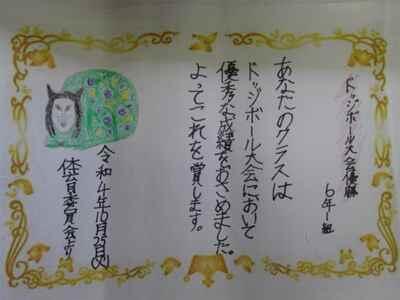 ドッジボール大会優勝
6年1組
あなたのクラスは
ドッジボール大会において
優秀な成績をおさめました。
よってこれを賞します。
令和4年10月25日
体育委員会より